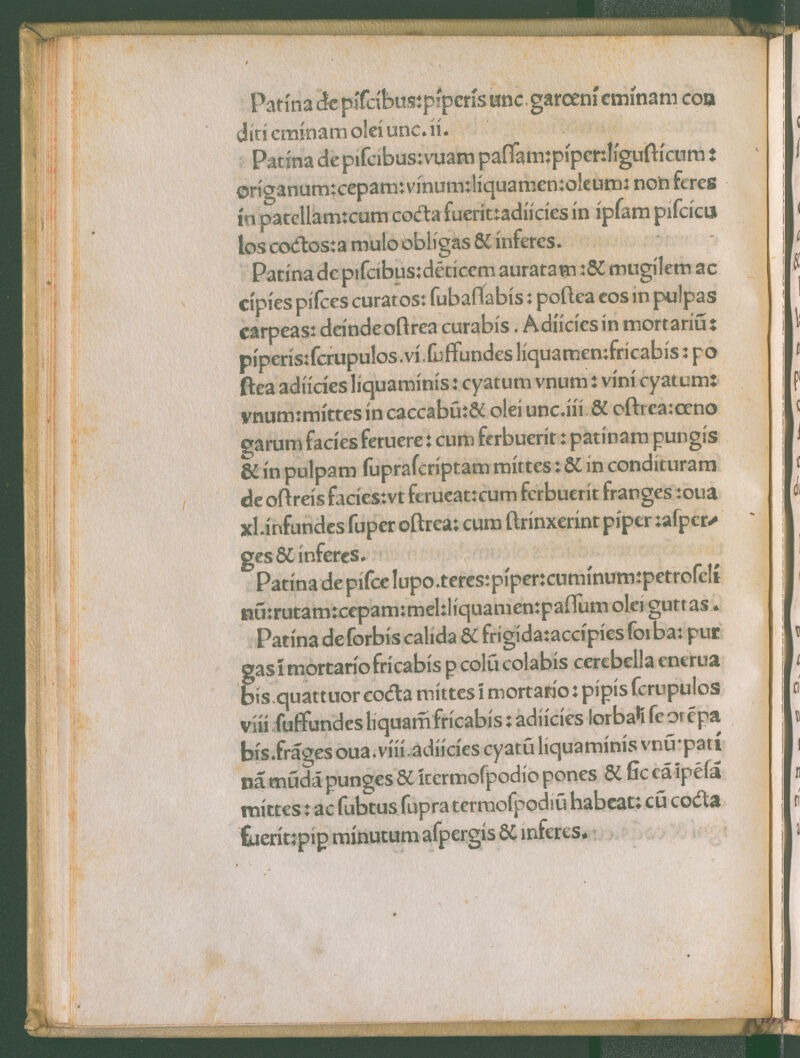 Patina de piſcibus:piperis unc.garœni eminam con
diti eminam olei unc.ii.
Patina de piſcibus:vuam paſſam:piper:liguſticum:
origanum:cepam:vinum:liquamen:oleum: non feres
in patellam:cum cocta fuerit:adiicies in ipſam piſcicu
los coctos:a mulo obligas & inferes.
Patina de piſcibus:dēticem auratam:& mugilem ac
cipies piſces curatos: ſubaſſabis: poſtea eos in pulpas
carpeas: deinde oſtrea curabis. Adiicies in mortariū:
piperis:ſcrupulos.vi.ſuffundes liquamen:fricabis: po
ſtea adiicies liquaminis: cyatum vnum: vini cyatum:
vnum:mittes in caccabū:& olei unc.iii & oſtrea:œno
garum facies feruere: cum ferbuerit: patinam pungis
& in pulpam ſupraſcriptam mittes: & in condituram
de oſtreis facies:vt ferueat:cum ferbuerit franges:oua
xl.infundes ſuper oſtrea: cum ſtrinxerint piper:aſper⸗
ges & inferes.
Patina de piſce lupo.teres:piper:cuminum:petroſeli
nū:rutam:cepam:mel:liquamen:paſſum olei guttas.
Patina de ſorbis calida & frigida:accipies ſorba: pur
gas ī mortario fricabis p colū colabis cerebella enerua
bis.quattuor cocta mittes ī mortario: pipis ſcrupulos
viii ſuffundes liquam̄ fricabis: adiicies ſorba ſe tēpa
bis.frāges oua.viii.adiicies cyatū liquaminis vnū:pati
nā mūdā punges & ītermoſpodio pones & ſic eā īpēſā
mittes: ac ſubtus ſupra termoſpodiū habeat: cū cocta
fuerit:pip minutum aſpergis & inferes.